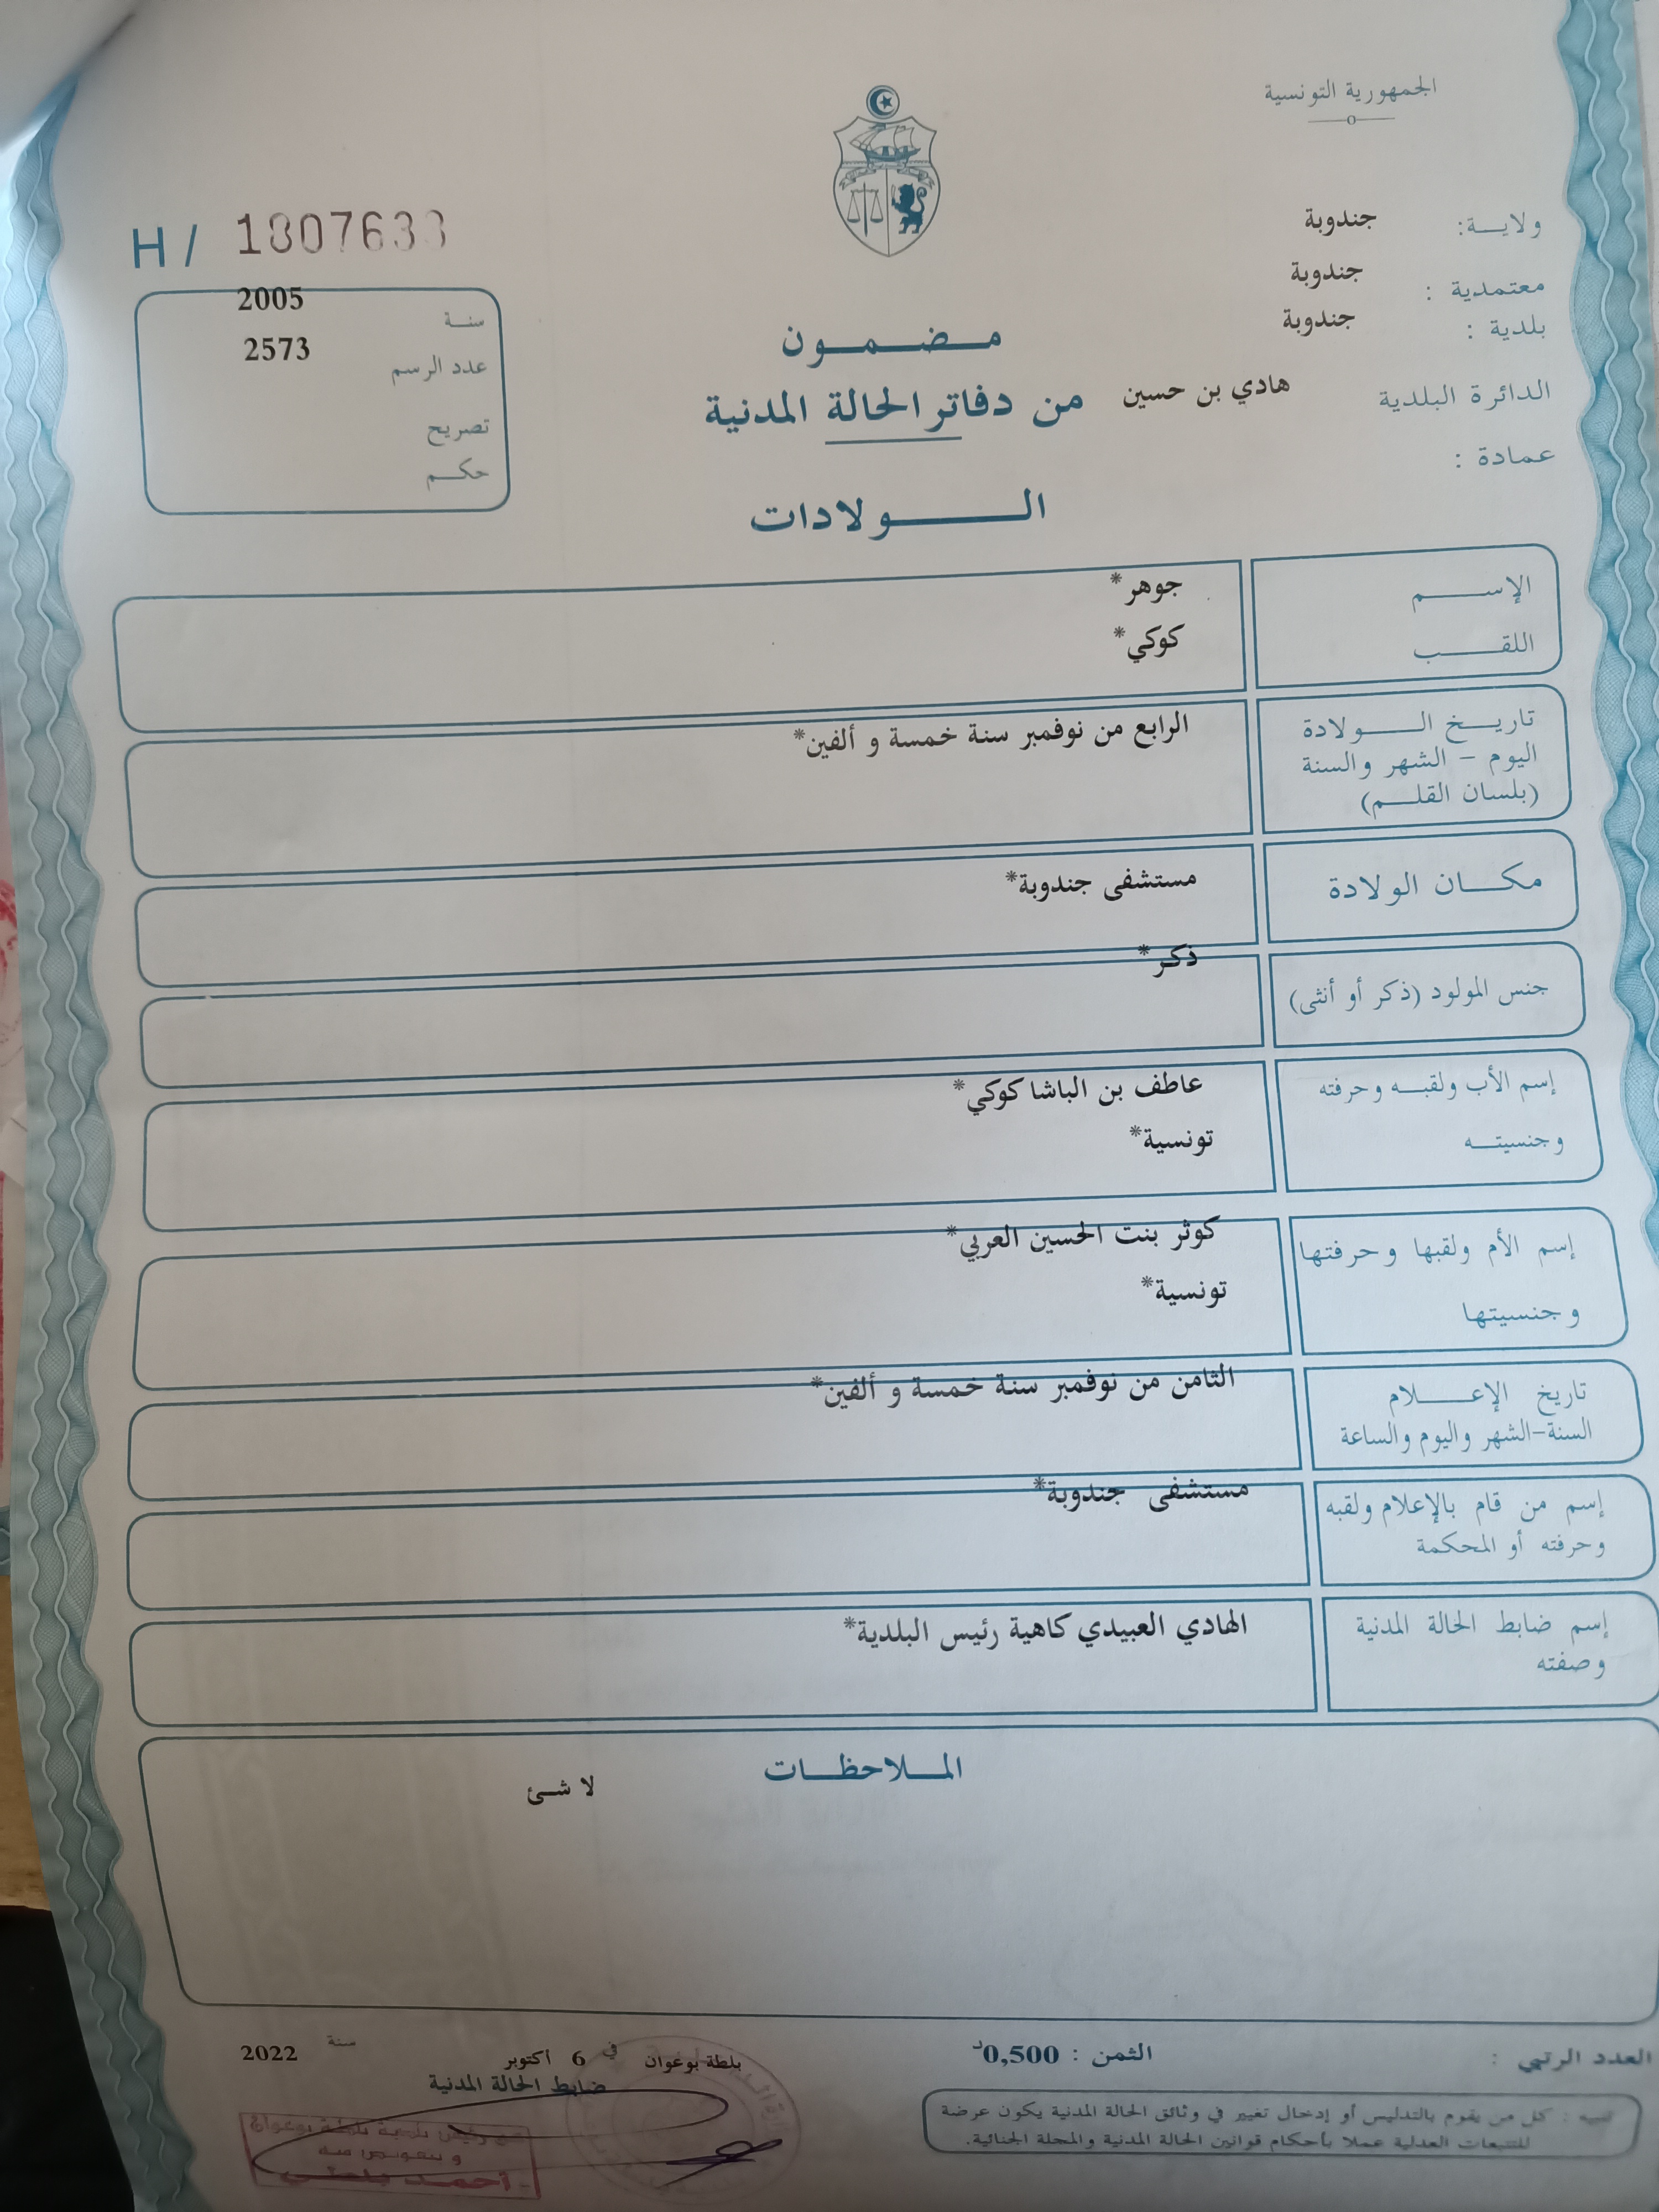 الجمهورية التونسية
ولايـــة: جندوبة
معتمدية : جندوبة
بلدية : جندوبة
الدائرة البلدية هادي بن حسين
عمادة :
H / 1807633
سنـة 2005
عدد الرسم 2573
تصريح
حكــم
مـضـمـون
من دفاتر الحالة المدنية
الـــولادات
الإســـم جوهر*
اللقـــب كوكي*
تاريــخ الـــولادة
اليوم – الشهر والسنة
(بلسان القلــم)
الرابع من نوفمبر سنة خمسة و ألفين*
مكــان الولادة مستشفى جندوبة*
جنس المولود (ذكر أو أنثى) ذكر*
إسم الأب ولقبــه وحرفته عاطف بن الباشا كوكي*
وجنسيتــه تونسية*
إسم الأم ولقبها وحرفتها كوثر بنت الحسين العربي*
وجنسيتها تونسية*
تاريخ الإعـــلام
السنة-الشهر واليوم والساعة
الثامن من نوفمبر سنة خمسة و ألفين*
إسم من قام بالإعلام ولقبه
وحرفته أو المحكمة
مستشفى جندوبة*
إسم ضابط الحالة المدنية
وصفته
الهادي العبيدي كاهية رئيس البلدية*
المــلاحظــات
لا شئ
العدد الرتبي :
الثمن : 0,500د
بلطة بوعوان في 6 أكتوبر سنة 2022
ضابط الحالة المدنية
تنبيه : كل من يقوم بالتدليس أو إدخال تغيير في وثائق الحالة المدنية يكون عرضة
للتتبعات العدلية عملا بأحكام قوانين الحالة المدنية والمجلة الجنائية.
عن رئيس بلدية بلطة بوعوان
وبتفويض منه